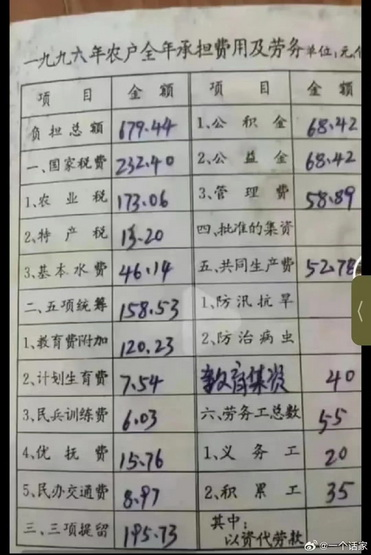 一九九六年农户全年承担费用及劳务 单位:元,
项目 金额 项目 金额
负担总额 679.44 1.公积金 68.42
一、国家税费 232.40 2.公益金 68.42
1.农业税 173.06 3.管理费 58.89
2.特产税 13.20 四、批准的集资
3.基本水费 46.14 五、共同生产费 52.78
二、五项统筹 158.53 1.防汛抗旱
1.教育费附加 120.23 2.防治病虫
2.计划生育费 7.54 教育集资 40
3.民兵训练费 6.03 六、劳务工总数 55
4.优抚费 15.76 1.义务工 20
5.民办交通费 8.97 2.积累工 35
三、三项提留 195.73 其中:
以资代劳款
@一个话家